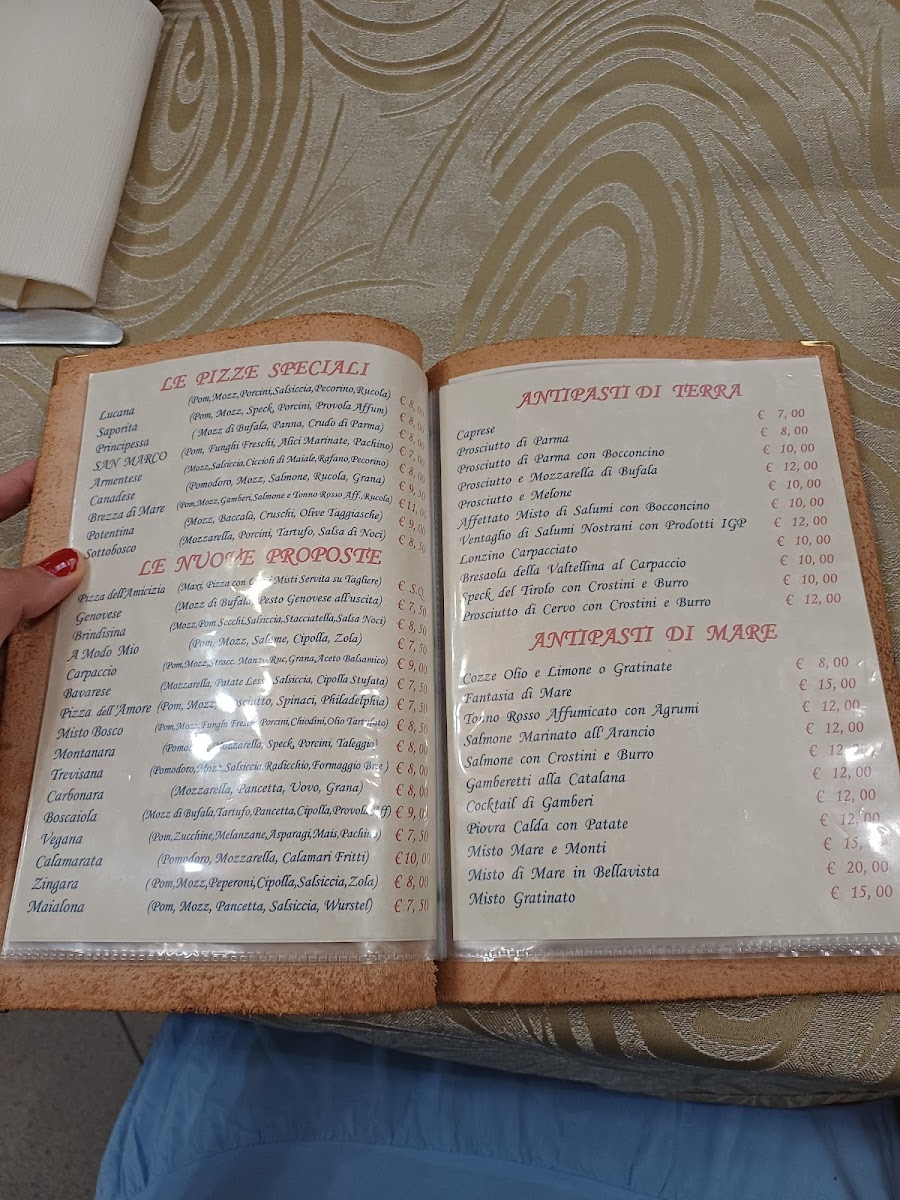 LE PIZZE SPECIALI
Lucana (Pom,Mozz,Porcini,Salsiccia,Pecorino,Rucola) € 8,00
Saporita (Pom, Mozz, Speck, Porcini, Provola Affum) € 8,00
Principessa ( Mozz di Bufala, Panna, Crudo di Parma) € 8,
SAN MARCO (Pom, Funghi Freschi, Alici Marinate, Pachino) € 7,
Armentese (Mozz,Salsiccia,Ciccioli di Maiale,Rafano,Pecorino) € 8,
Canadese (Pomodoro, Mozz, Salmone, Rucola, Grana) € 9,50
Brezza di Mare (Pom,Mozz,Gamberi,Salmone e Tonno Rosso Aff,Rucola) € 11,
Potentina (Mozz, Baccalà, Cruschi, Olive Taggiasche) € 9,00
Sottobosco (Mozzarella, Porcini, Tartufo, Salsa di Noci) € 8,50
LE NUOVE PROPOSTE
Pizza dell'Amicizia (Maxi, Pizza con Misti Servita su Tagliere) € S.Q.
Genovese (Mozz di Bufala, Pesto Genovese all'uscita) € 7,50
Brindisina (Mozz,Pom Secchi,Salsiccia,Stacciatella,Salsa Noci) € 8,50
A Modo Mio (Pom, Mozz, Salame, Cipolla, Zola) € 7,50
Carpaccio (Pom,Mozz,Stracc. Manzo,Ruc,Grana,Aceto Balsamico) € 9,00
Bavarese (Mozzarella, Patate Lesse, Salsiccia, Cipolla Stufata) € 7,50
Pizza dell'Amore (Pom, Mozz, Prosciutto, Spinaci, Philadelphia) € 7,50
Misto Bosco (Pom,Mozz,Funghi Freschi,Porcini,Chiodini,Olio Tartufato) € 8,50
Montanara (Pomodoro, Mozzarella, Speck, Porcini, Taleggio) € 8,00
Trevisana (Pomodoro,Mozz,Salsiccia,Radicchio,Formaggio Brie ) € 8,00
Carbonara (Mozzarella, Pancetta, Uovo, Grana) € 8,00
Boscaiola (Mozz di Bufala,Tartufo,Pancetta,Cipolla,Provola Aff) € 9,00
Vegana (Pom,Zucchine,Melanzane,Asparagi,Mais,Pachino) € 7,50
Calamarata (Pomodoro, Mozzarella, Calamari Fritti) € 10,00
Zingara (Pom,Mozz,Peperoni,Cipolla,Salsiccia,Zola) € 8,00
Maialona (Pom, Mozz, Pancetta, Salsiccia, Wurstel) € 7,50
ANTIPASTI DI TERRA
Caprese € 7,00
Prosciutto di Parma € 8,00
Prosciutto di Parma con Bocconcino € 10,00
Prosciutto e Mozzarella di Bufala € 12,00
Prosciutto e Melone € 10,00
Affettato Misto di Salumi con Bocconcino € 10,00
Ventaglio di Salumi Nostrani con Prodotti IGP € 12,00
Lonzino Carpacciato € 10,00
Bresaola della Valtellina al Carpaccio € 10,00
Speck del Tirolo con Crostini e Burro € 10,00
Prosciutto di Cervo con Crostini e Burro € 12,00
ANTIPASTI DI MARE
Cozze Olio e Limone o Gratinate € 8,00
Fantasia di Mare € 15,00
Tonno Rosso Affumicato con Agrumi € 12,00
Salmone Marinato all'Arancio € 12,00
Salmone con Crostini e Burro € 12,00
Gamberetti alla Catalana € 12,00
Cocktail di Gamberi € 12,00
Piovra Calda con Patate € 12,00
Misto Mare e Monti € 15,
Misto di Mare in Bellavista € 20,00
Misto Gratinato € 15,00